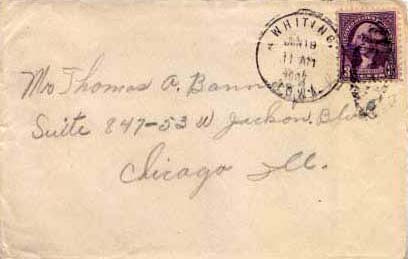 WHITING,
JAN 18
11 AM
Mr Thomas A. Bann
Suite 847-53 W Jackson Blvd
Chicago Ill.